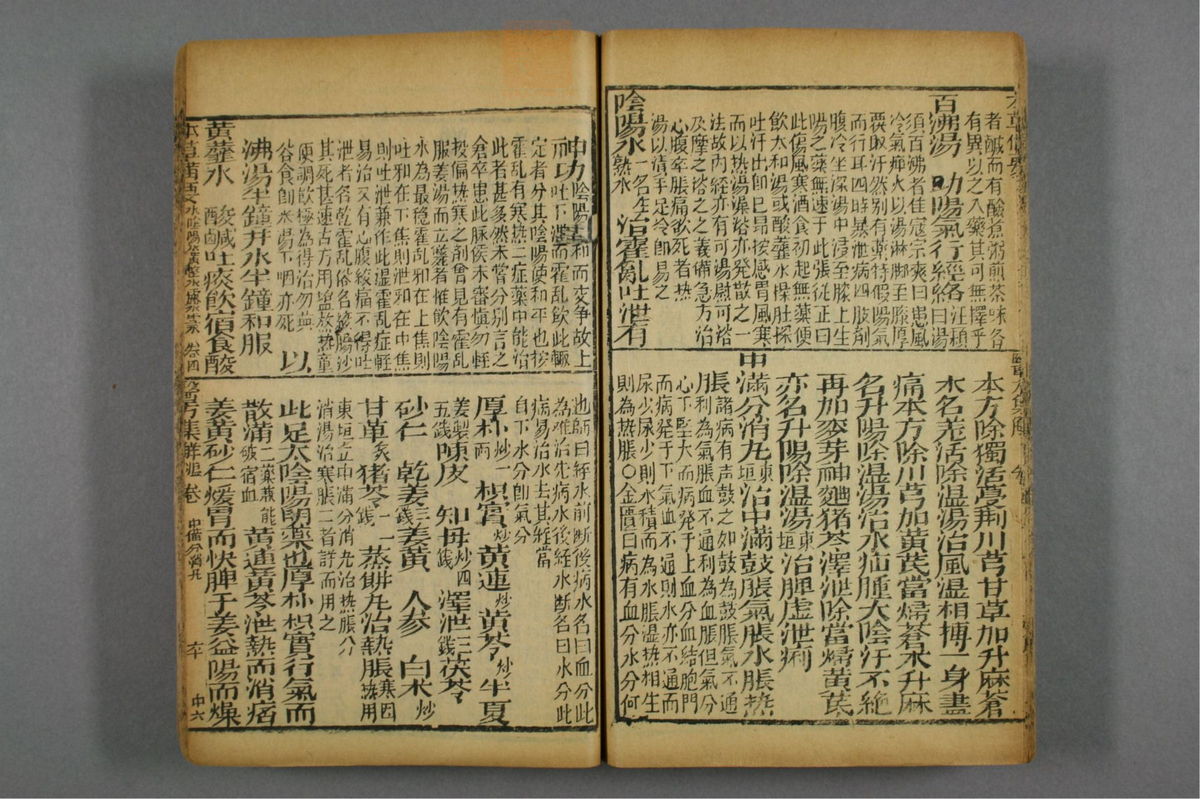 者鹹而有鹼煮粥煎茶味各
有異以之入藥其可無擇乎
百沸湯 助陽氣行經絡 汪穎曰湯
須百沸者佳寇宗奭曰患風
冷氣痺人以湯淋脚至膝厚
覆取汗然別有藥特假陽氣
而行耳四時暴泄痢四肢
腹冷坐深湯中浸至腹上生
陽之藥無速于此張從正曰
此傷風寒酒食初起無藥便
飲太和湯或酸虀水探吐探
吐汗出即已昂按感冒風寒
而以热湯澡浴亦発散之一
法故内經亦有可湯熨可浴
及摩之浴之之義備急方治
心腹卒脹痛欲死者热
湯以漬手足冷即易之
陰陽水 一名生熟水 治霍亂吐泄有
本方除獨活蔓荆川芎甘草加升麻蒼
木名羌活除湿湯治風湿相搏一身盡
痛本方除川芎加黃茋當㷌蒼木升麻
名升陽除湿湯治水疝腫大陰汗不絶
再加麥芽神麯猪苓澤泄除當㷌黃茋
亦名升陽除湿湯東垣治脾虚泄痢
中滿分消丸東垣治中滿鼓脹氣脹水脹热
脹 諸病有声鼓之如鼓為鼓脹氣不通
利為氣脹血不通利為血脹但氣分
心下堅大而病発于上血分血結胞門
而病発于下氣血不通則水亦不通而
尿少尿少則水積而為水脹湿热相生
則為热脹〇金匱曰病有血分水分何
神功 陰陽不和而交爭故上
吐下泄而霍乱飲此輙
定者分其陰陽使和平也按
霍乱有寒热二症藥中能治
此者甚多然未嘗分別言之
倉卒患此脉侯未審慎勿輕
投偏热寒之剤曾見有霍乱
服姜湯而立斃者惟飲陰陽
水為最穏霍乱邪在上焦則
吐邪在下焦則泄邪在中焦
則吐泄兼作此湿霍乱症輕
易治又有心腹絞痛不得吐
泄者名乾霍乱俗名絞腸沙
其死甚速古方用塩熬热童
便調飲極為得治勿與
谷食即米湯下咽亦死 以
沸湯半鐘井水半鐘和服
黃虀水 酸鹹吐痰飲宿食酸
也師曰經水前断後病水名曰血分此
為难治先病水後經水断名曰水分此
病易治水去其經當
自下水分即氣分
厚朴炒一兩 枳實炒 黄連炒 黄芩炒 半夏
姜製五錢 陳皮 知母炒四錢 澤泄三錢 茯苓
砂仁 乾姜二錢 姜黃 人參 白朮炒
甘草炙 猪苓一錢 蒸餅丸治熱脹寒因热用
東垣立中滿分消丸治热脹分
消湯治寒脹二者詳而用之
此足太陰陽明藥也厚朴枳實行氣而
散滿二藥兼能破宿血 黃連黄芩泄熱而消痞
姜黄砂仁煖胃而快脾于姜益陽而燥